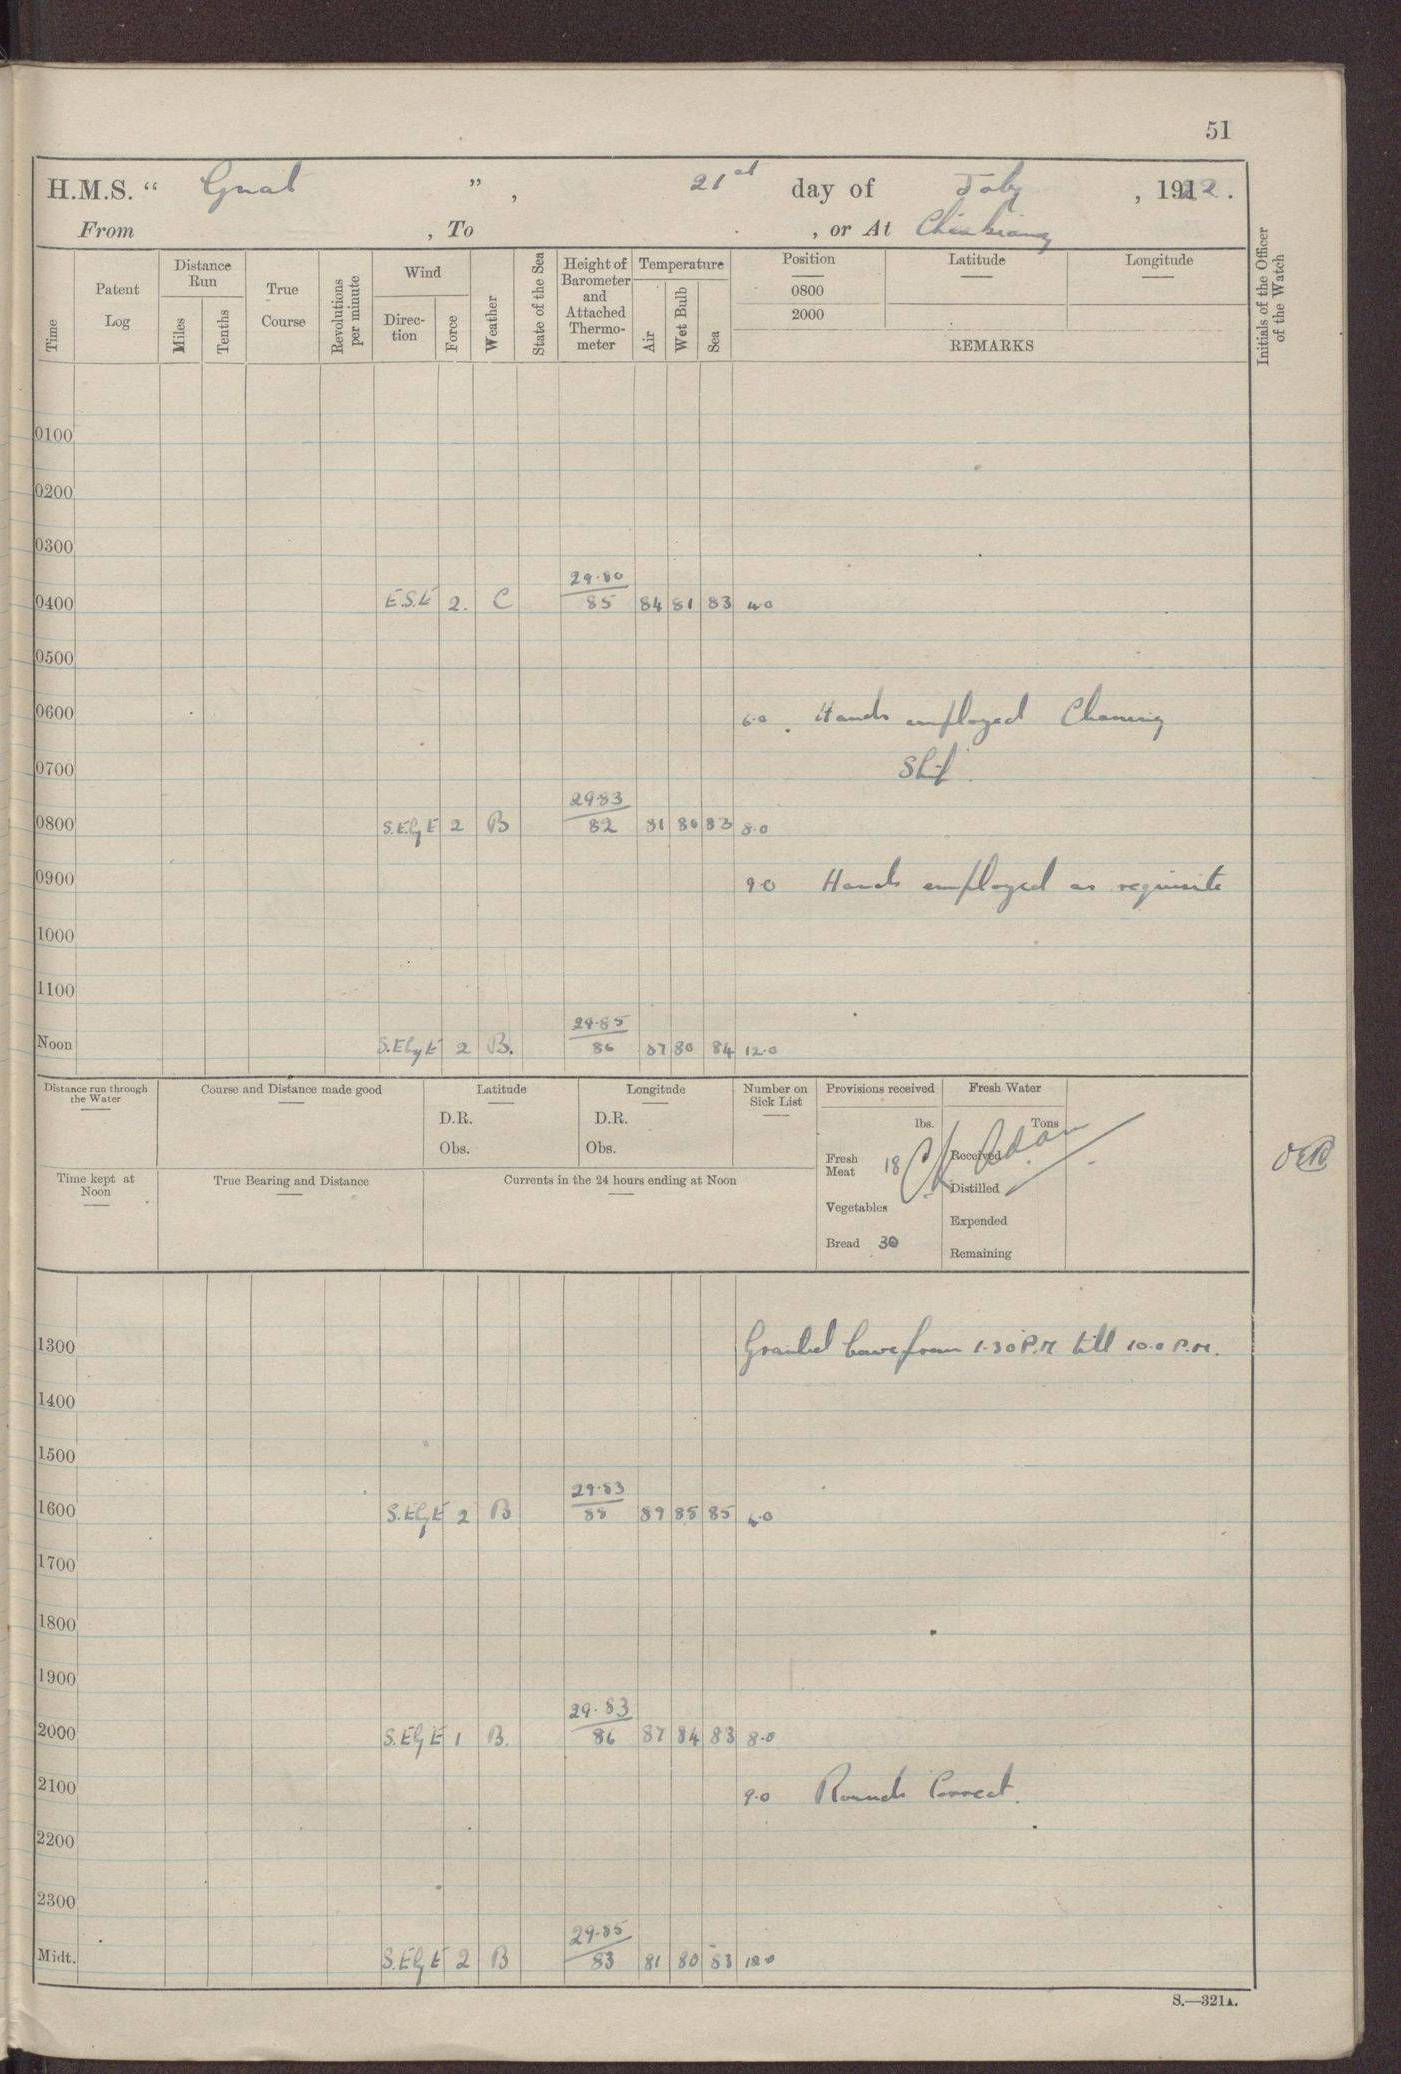 51
H.M.S. “ Gnat ” , 21st day of July , 1922.
From , To , or At Chinkiang
Time
Patent Log
Distance Run
Miles
Tenths
True Course
Revolutions per minute
Wind
Direc-tion
Force
Weather
State of the Sea
Height of Barometer and Attached Thermo-meter
Temperature
Air
Wet Bulb
Sea
Position
0800
2000
Latitude
Longitude
REMARKS
Initials of the Officer of the Watch
0100
0200
0300
29.80
0400 E.S.E 2. C 85 84 81 83 4.0
0500
0600 6.0 Hands employed Cleaning
0700 Ship
29.83
0800 S.E by E 2 B 82 81 80 83 8.0
0900 9.0 Hands employed as requisite
1000
1100
29.85
Noon S.E by E 2 B. 86 87 80 84 12.0
Distance run through the Water
Course and Distance made good
Latitude
D.R.
Obs.
Longitude
D.R.
Obs.
Number on Sick List
Provisions received
lbs.
Fresh Meat 18
Vegetables
Bread 30
Fresh Water
Tons
Received
Distilled
Expended
Remaining
Time kept at Noon
True Bearing and Distance
Currents in the 24 hours ending at Noon
1300 Granted leave from 1.30 P.M. till 10.0 P.M.
1400
1500
29.83
1600 S.E by E 2 B 88 89 85 85 4.0
1700
1800
1900
29.83
2000 S.E by E 1 B. 86 87 84 83 8.0
2100 9.0 Rounds Correct.
2200
2300
29.85
Midt. S.E by E 2 B 83 81 80 83 12.0
S.—321A.